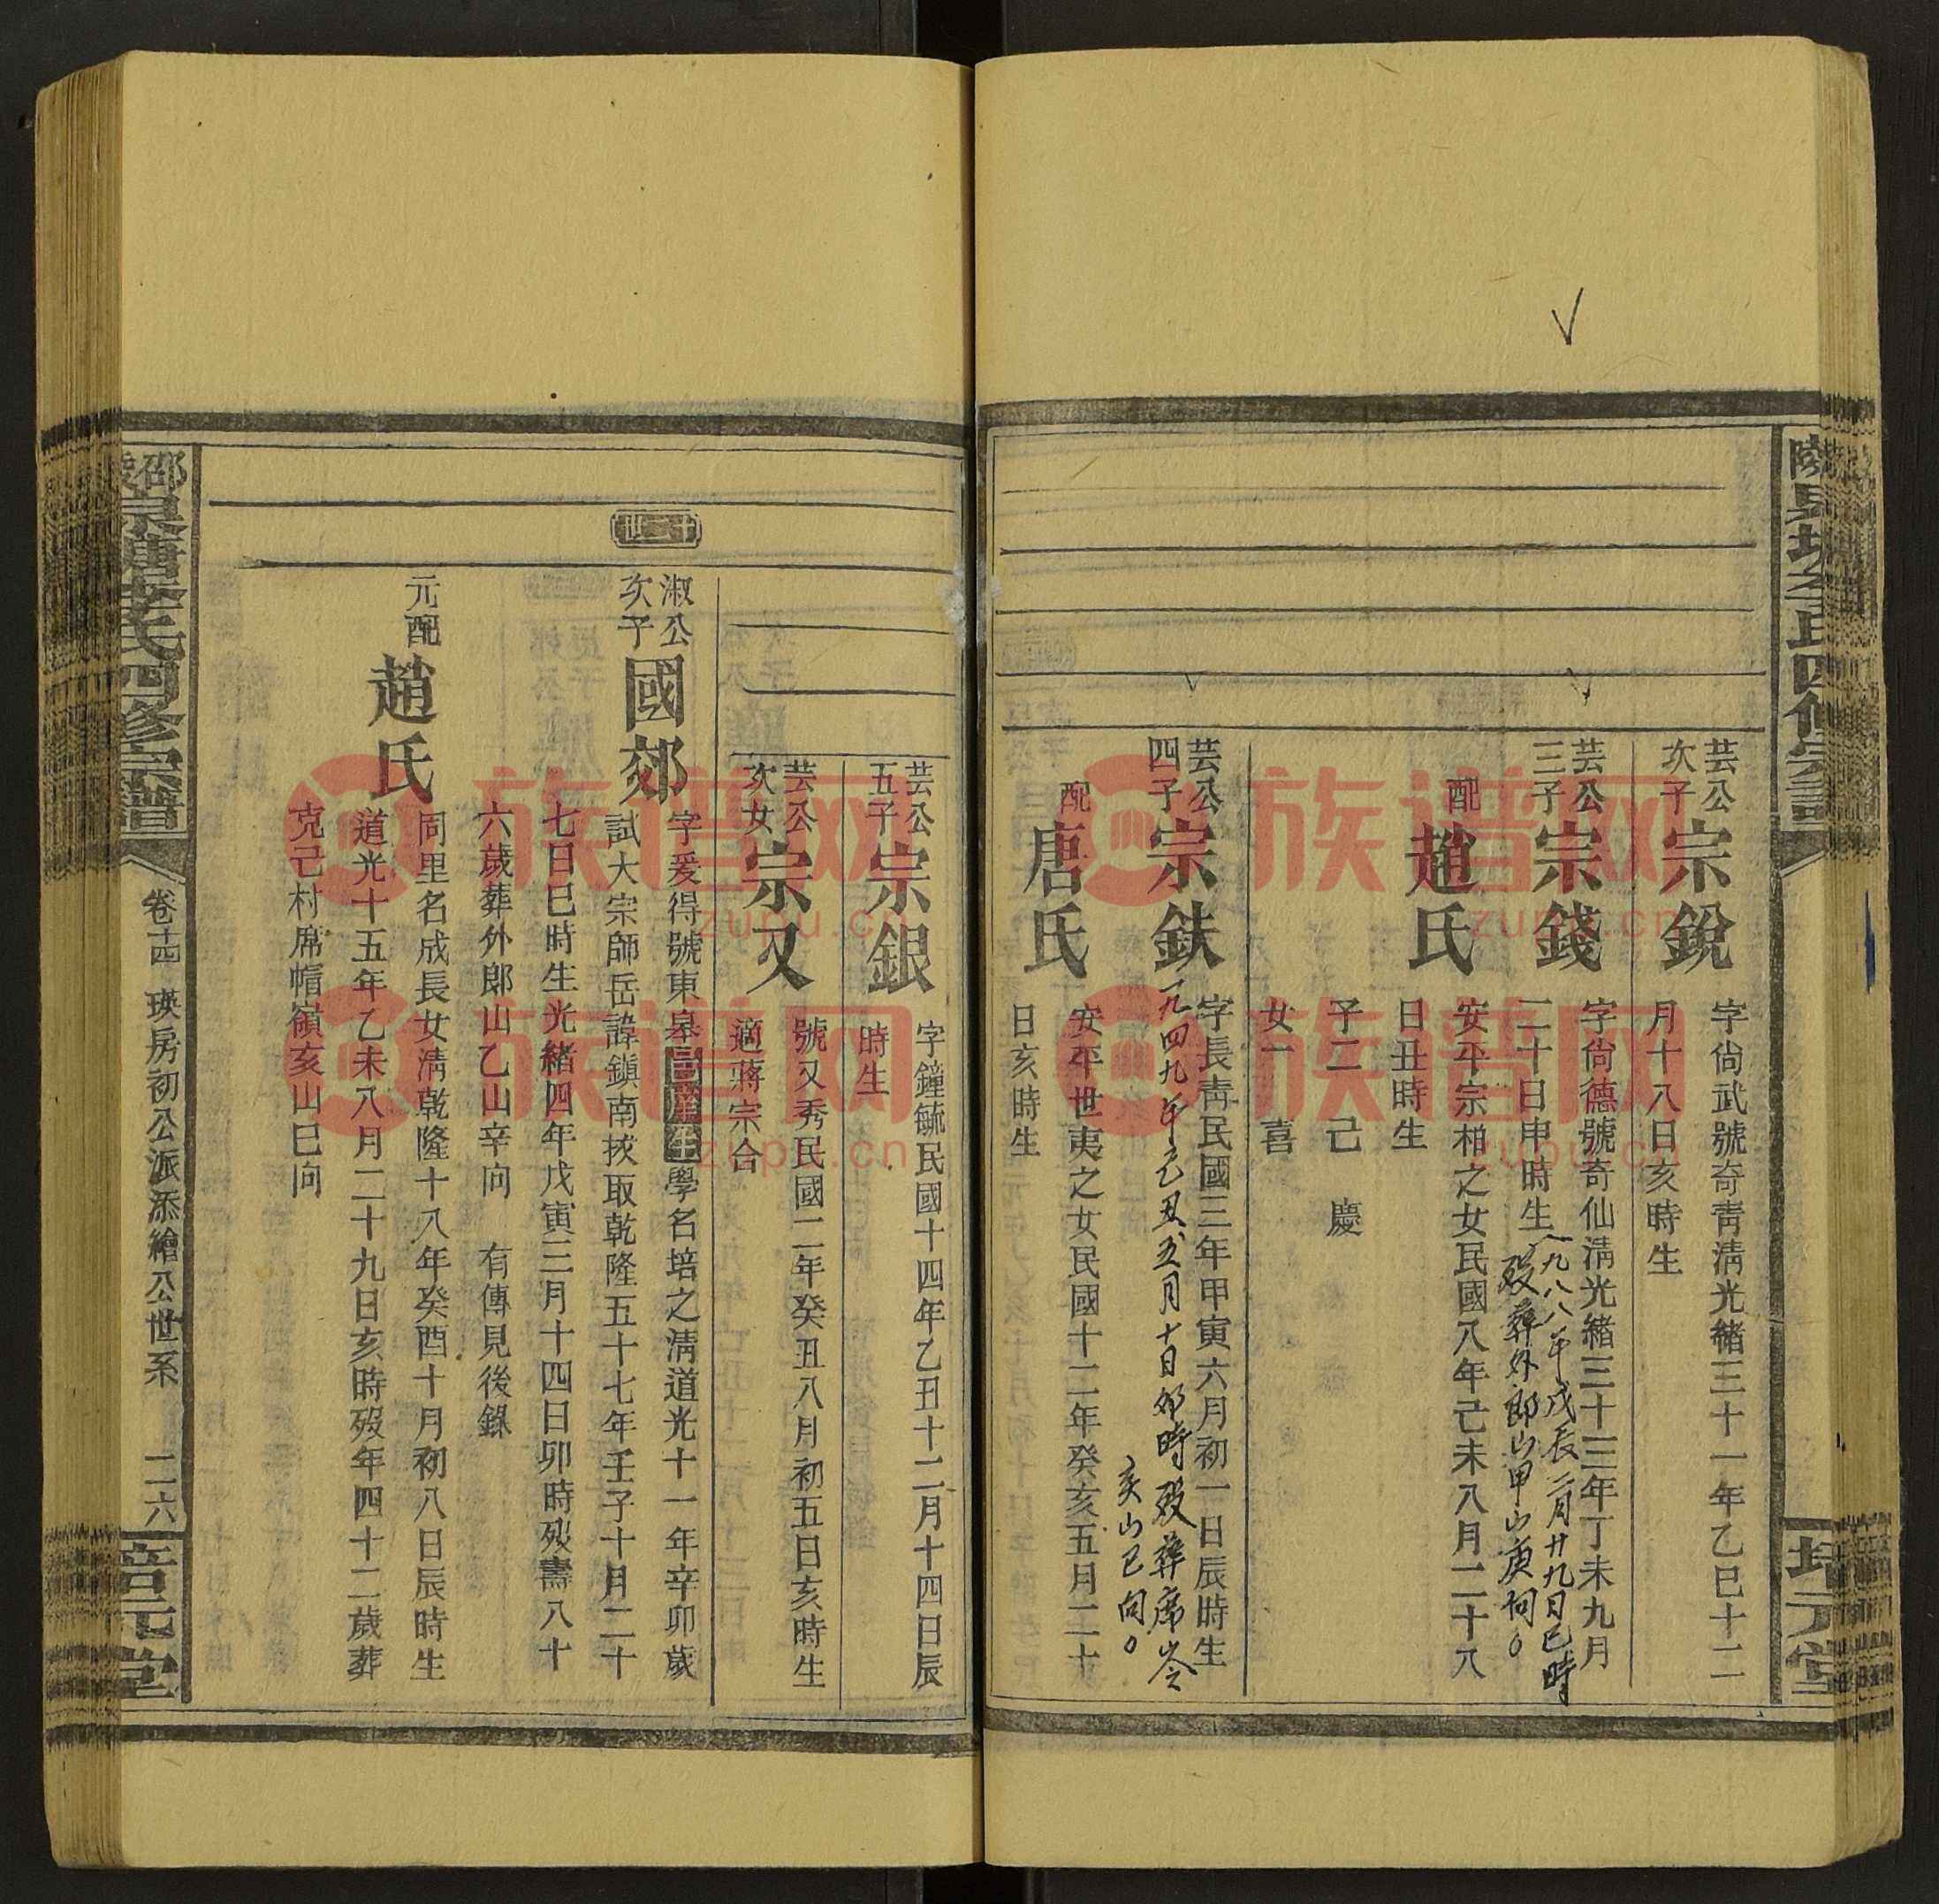 芸公次子
宗銳
字尙武號奇靑淸光緖三十一年乙巳十二
月十八日亥時生
芸公三子
宗錢
字尙德號奇仙淸光緖三十三年丁未九月
二十日申時生
一九八八年戊辰二月廿九日巳時
殁葬外郎山甲山庚向。
配
趙氏
安平宗柏之女民國八年己未八月二十八
日丑時生
子二 己 慶
女一 喜
芸公四子
宗鈇
字長靑民國三年甲寅六月初一日辰時生
一九四九年己丑五月十日卯時殁葬席岺
亥山巳向。
配
唐氏
安平世夷之女民國十二年癸亥五月二十
日亥時生
芸公五子
宗銀
字鐘毓民國十四年乙丑十二月十四日辰
時生
芸公次女
宗又
號又秀民國二年癸丑八月初五日亥時生
適蔣宗合
十二世
淑公次子
國郊
字爰得號東皋邑庠生學名培之淸道光十一年辛卯歲
試大宗師岳諱鎭南拔取乾隆五十七年壬子十月二十
七日巳時生光緖四年戊寅三月十四日卯時殁壽八十
六歲葬外郎山乙山辛向 有傳見後錄
元配
趙氏
同里名成長女淸乾隆十八年癸酉十月初八日辰時生
道光十五年乙未八月二十九日亥時歿年四十二歲葬
克己村席帽嶺亥山巳向
邵陵泉塘李氏四修宗譜
卷十四 瑛房初公派添繪公世系 二六
培元堂
族谱网
zupu.cn